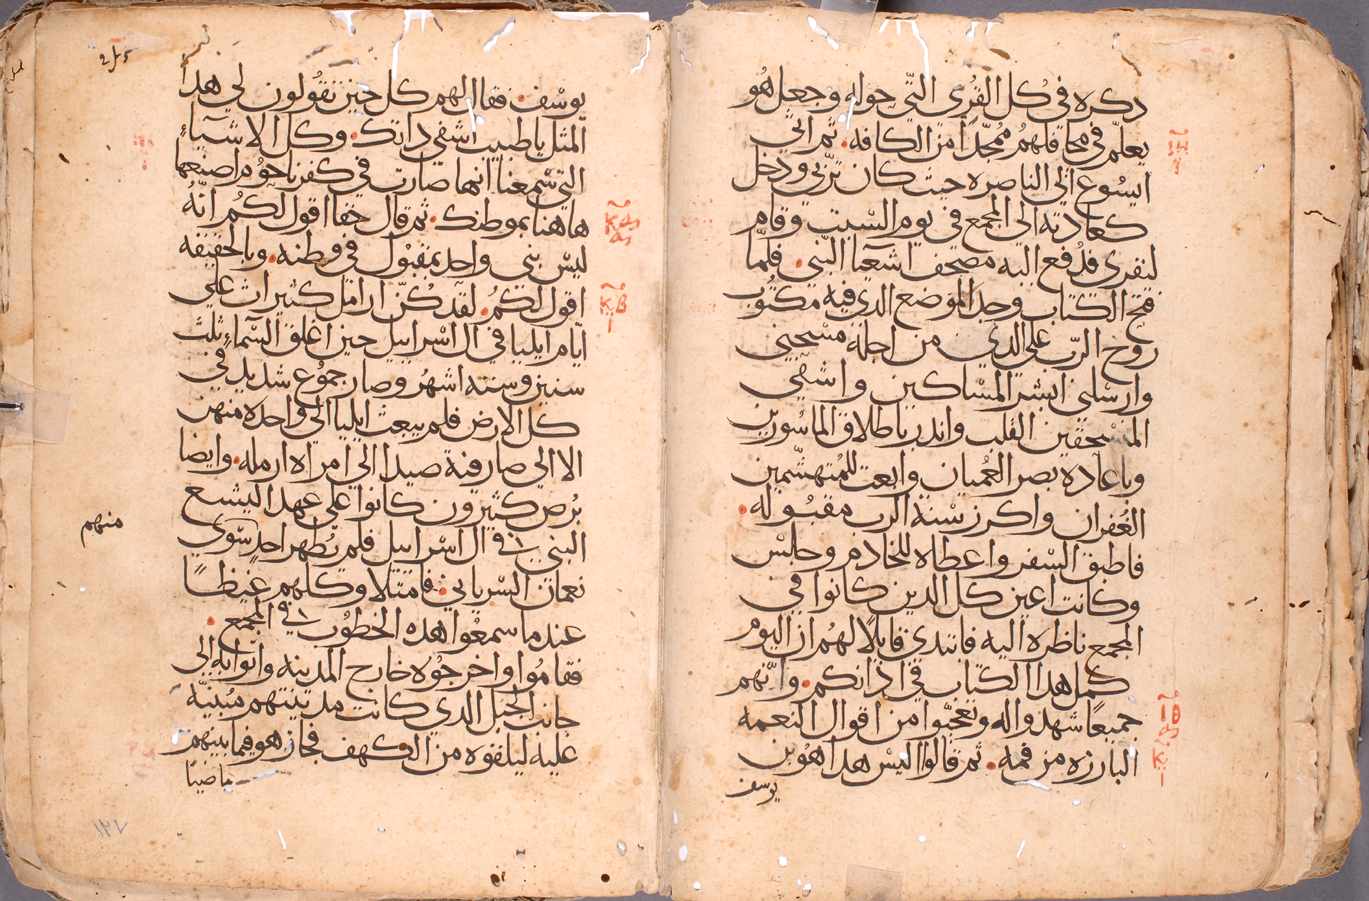 دكره في كل القُرى التّي حوله وجعل هُو
يعلّم في محافلهمُ مُمجّداً من الكافه. ثم اتي
ايسُوع الي الناصره حيث كان تربّي ودخل
كعادته الي المجمع في يوم السّبت وقام
ليقرى فدُفع اليه مصحف اشعيا النّبي. فلمّا
فتح الكتاب وجد الموضع الدي فيه مكتوُب
روح الرّب علي الدي من اجله مسَحني
وارسْلني ابشر المسْاكين واشفي
المنسْحقين القلب واندر باطلاق الماسُورين
وباعاده بصر العُميان وابعت للمُتهشّمين
الغُفران واكرز بسْنة الرب مقبُوله.
فاطبق السْفر واعطاه للخادم وجلسْ
وكانت اعين كل الدين كانوا في
المجمع ناظره اليه فابتدى قايلاً لهمُ ان اليوم
كمل هدا الكتاب في ادانكم. وانّهم
جميعًا شهدوا له وتعجّبوا من اقوال النعمه
البارزه من فمه. ثم قالوا اليسْ هدا هوُ بن
يوسف
ΙΗ
Ι
ΙΘ
Κ
Ι
245
يوسْف. فقال لهم كل حين تقوُلون لي هدا
المثل يا طبيب اشفي داتك. وكل الاشيآءِ
التي سْمعنا انها صارت في كفرناحوُم اصنعها
هاهنا بموطنك. ثم قال حقا اقول لكمُ انّهُ
ليسْ نبي واحد بمقبُول في وطنه. وبالحقيقه
اقول لكمُ. لقد كُنّ ارامل كثيراث علي
ايام ايليا في ال اسْراييل حين اغلق السْماءِ ثلث
سنين وسته اشهُر وصار جموُع شديد في
كل الارض فلم يبعث ايليا الي واحده منهن
الا الي صارفية صيدا الي امراه ارمله. وايضا
بُرص كثيرون كانوا علي عهد اليشع
النبي في ال اسْراييل فلم يطُهر احد سْوي
منهم
نعمان السْرياني. فامتلا وكلهم غيظاً
عندما سمعُوا هده الخطوُب في المجمع.
فقاموُا واخرجوُه خارج المدينه واتوا به الي
جانب الجبل الدي كانت مدينتهم مُبنيّه
عليه ليلقوه من الكهف فجاز هو فيما بينهم
ماضيًا
ΚΑ
ΚΒ
Ι
١٣٧